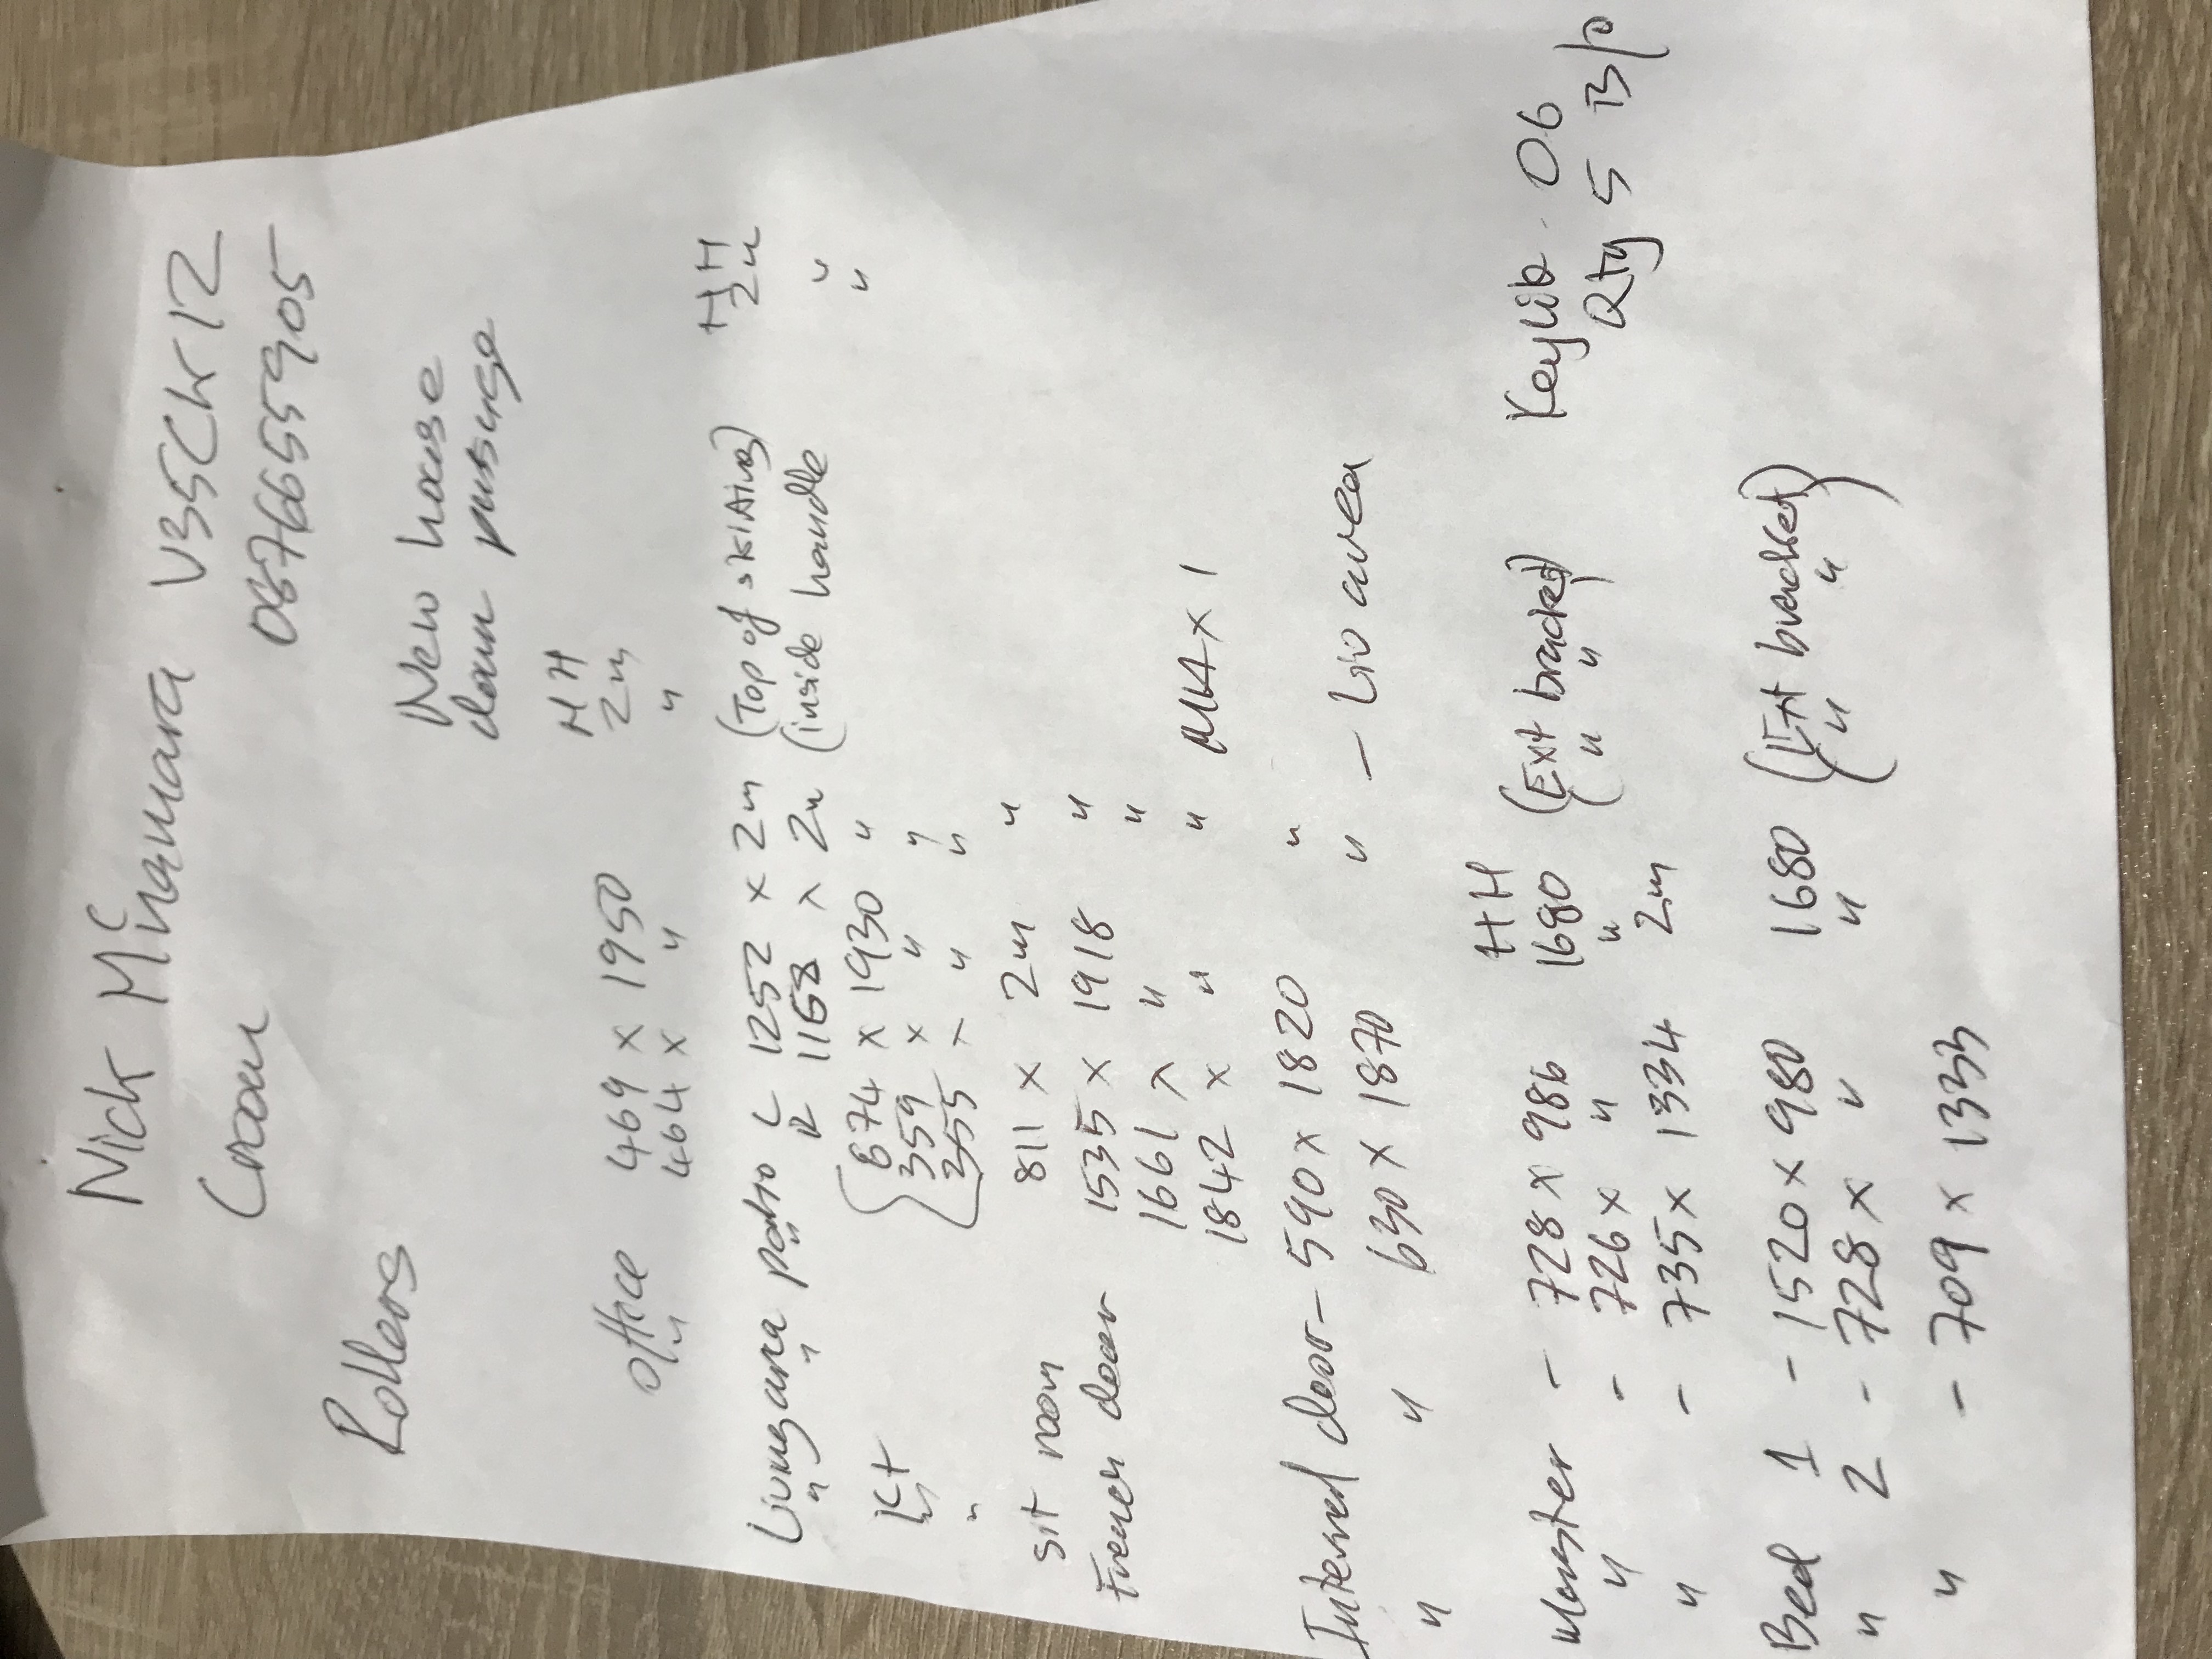 Nick Mc namara V35Ck12
Croom 0876655905
Rollers New house
down passage
HH
office 469 x 1950 2m
" 464 x " "
HH
Living area patio L 1252 x 2m (Top of skirting) 2m
" " " R 1168 x 2m (inside handle "
Kit 874 x 1930 " "
" 359 x " "
" 355 x " "
Sit room 811 x 2m "
French door 1535 x 1918 "
1661 x " "
1842 x " "
Internal door - 590 x 1820 "
" " 630 x 1870 " - Liv area
HH
Master - 728 x 986 1680 (Ext bracket) 06
" - 726 x " " ( " " ) Qty 5 B/o
" - 735 x 1334 2m
Bed 1 - 1520 x 980 1680 (Ext bracket)
" 2 - 728 x " " ( " " )
" - 709 x 1333